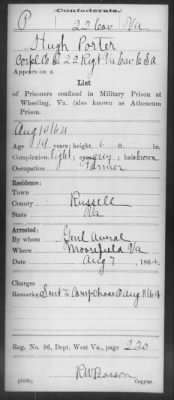 Confederate.
P 22 Cav. Va
Hugh Porter
Corpl. Co. 22 Reg't Va Cav C S A
Appears on a
List
of Prisoners confined in Military Prison at
Wheeling, Va. (also known as Atheneum
Prison.
Aug 10 1864
Age 19 years; height, 6 ft. in.
Complexion, light; eyes, grey; hair, brown
Occupation Farmer
Residence:
Town
County Russell
State Va
Arrested:
By whom Genl Averal
Where Moorefield Va
Date Aug 7, 1864.
Charges
Remarks Sent to Camp Chase O Aug 11 1864
Reg. No. 96, Dept. West Va., page 220
Copyist.